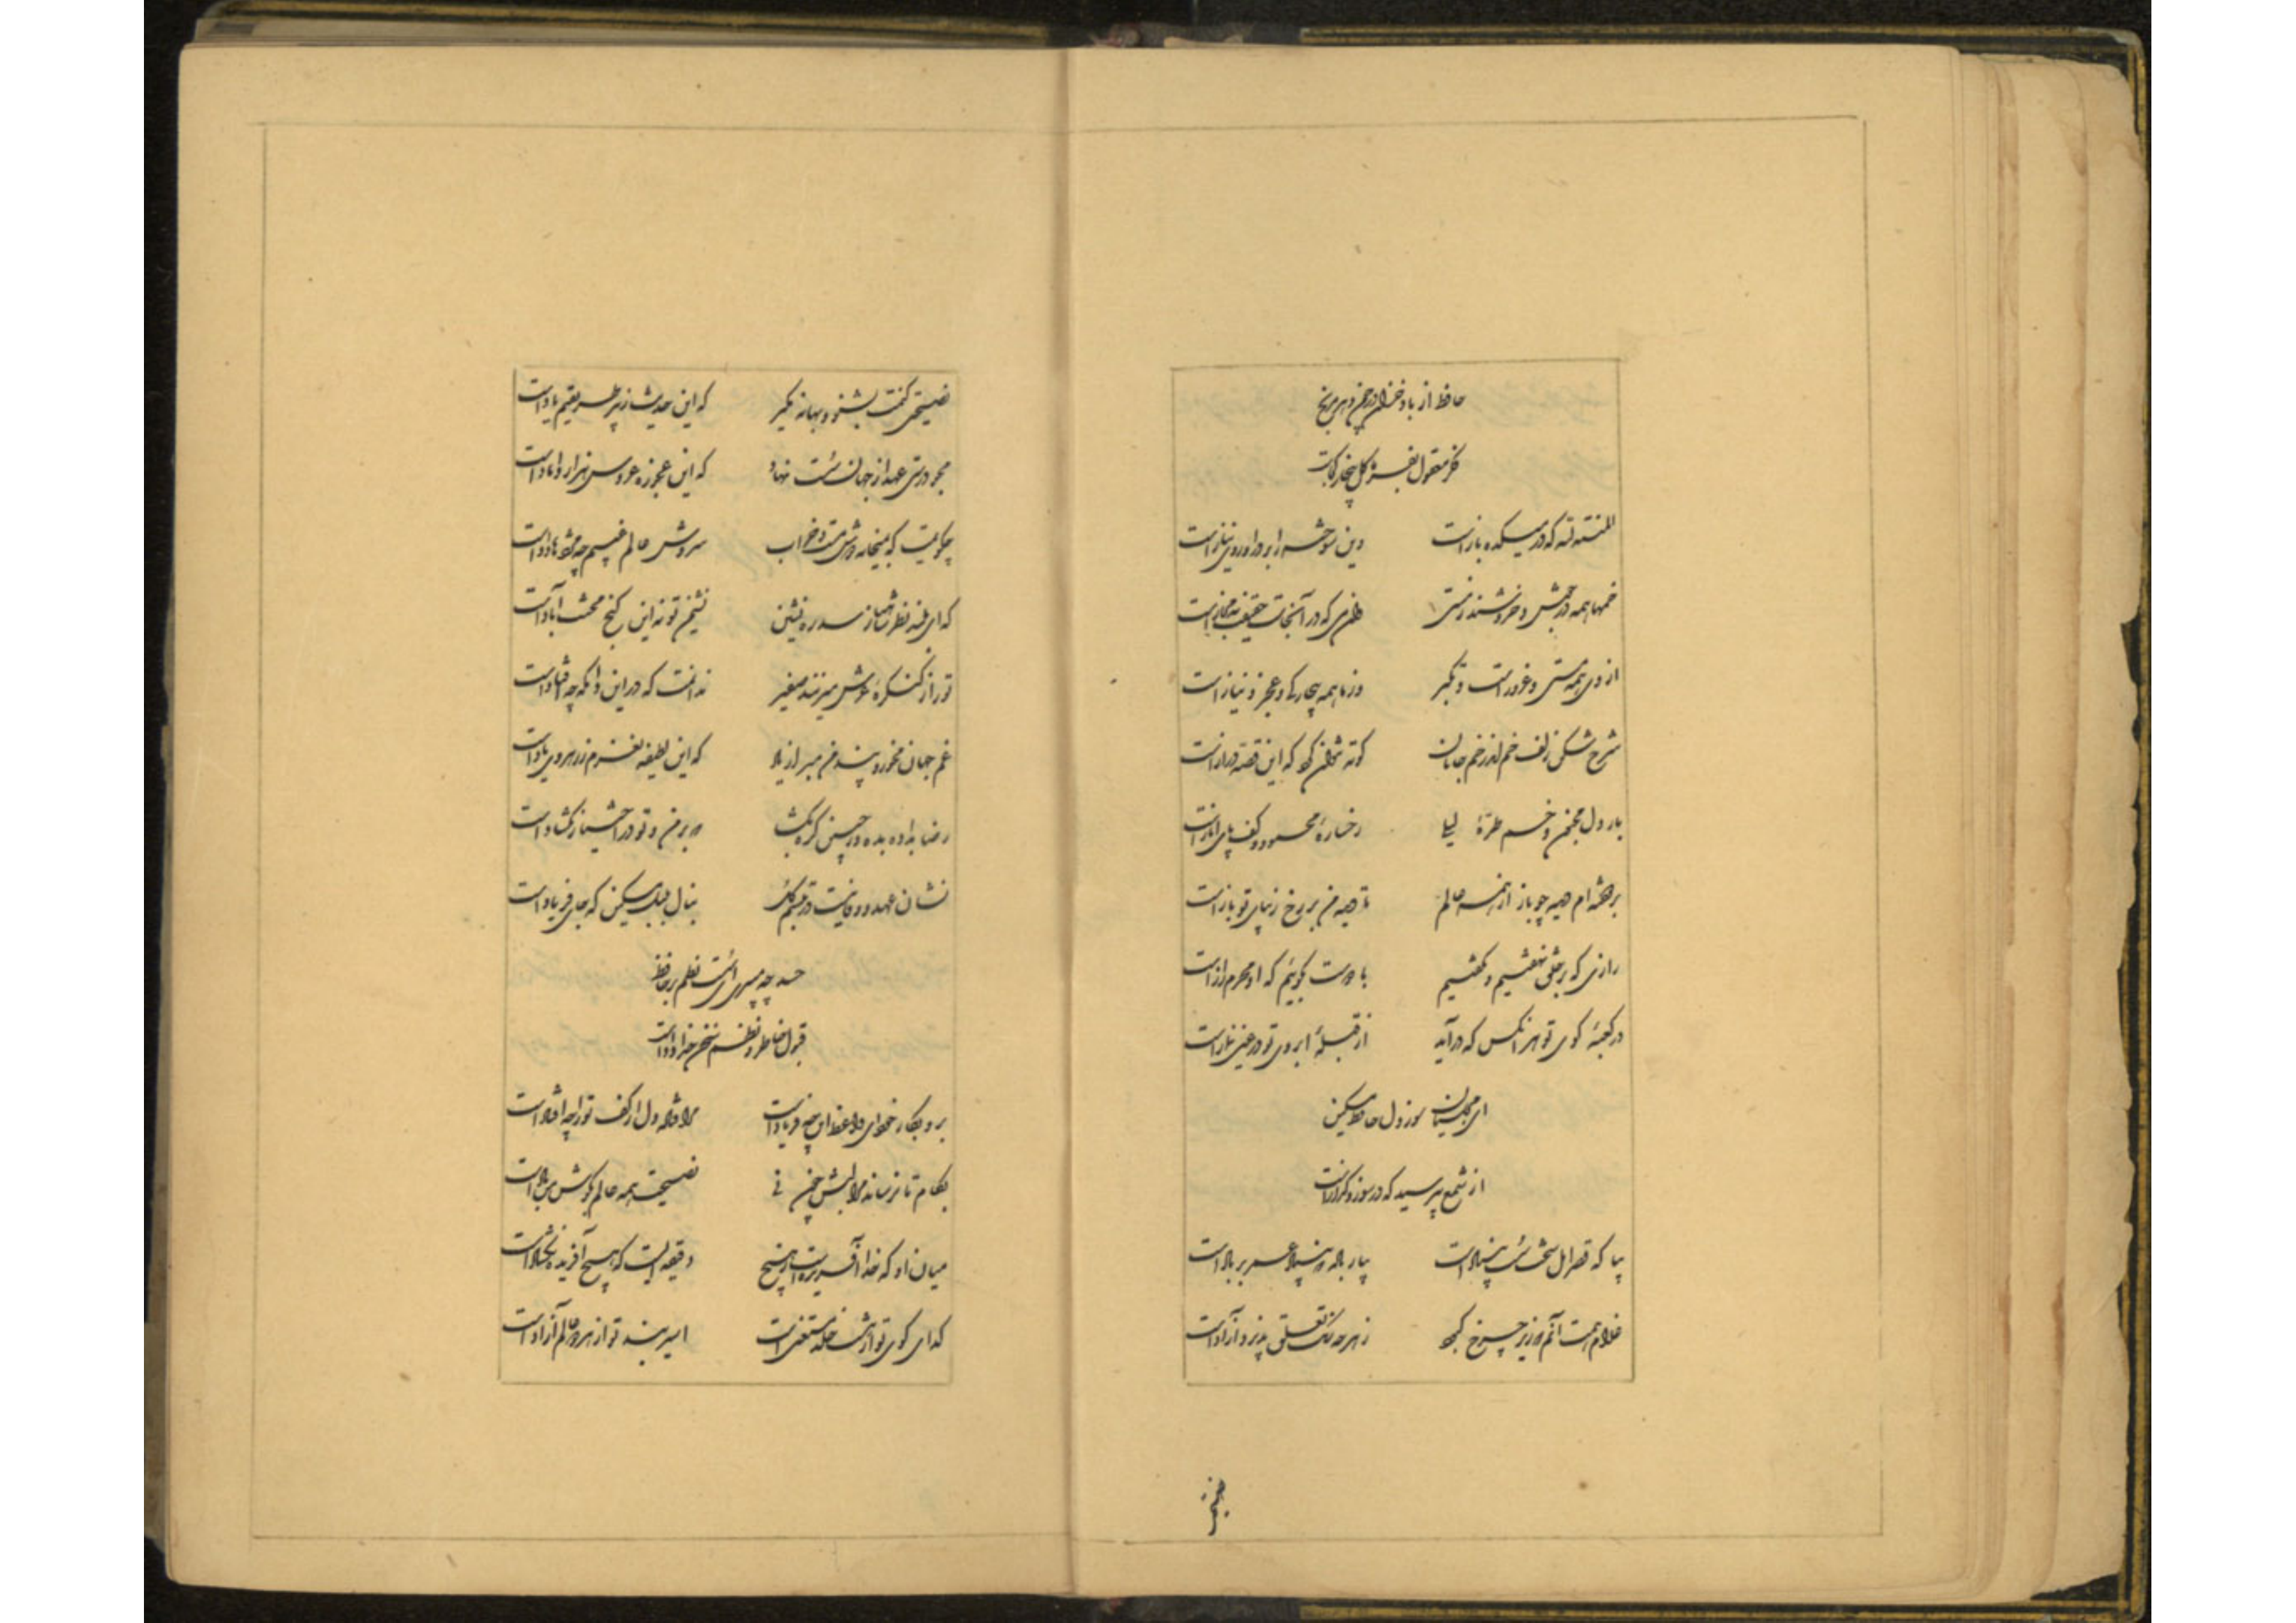 حافظ از باد خزان در چمن دهر مرنج
فکر معقول بفرما گل بیخار کجاست
المنته لله که در میکده باز است    وین سوخته را بر در او روی نیاز است
خمها همه در جوش و خروشند ز مستی    وان می که در آنجاست حقیقت نه مجاز است
از وی همه مستی و غرور است و تکبر    وز ما همه بیچارگی و عجز و نیاز است
شرح شکن زلف خم اندر خم جانان    کوته نتوان کرد که این قصه دراز است
بار دل مجنون و خم طرهٔ لیلی    رخسارهٔ محمود و کف پای ایاز است
بردوخته‌ام دیده چو باز از همه عالم    تا دیده من بر رخ زیبای تو باز است
رازی که بر خلق نهفتیم و نگفتیم    با دوست بگوئیم که او محرم راز است
در کعبهٔ کوی تو هر انکس که درآید    از قبلهٔ ابروی تو در عین نماز است
ای مجلسیان سوز دل حافظ مسکین
از شمع بپرسید که در سوز و گداز است
بیا که قصر امل سخت سست بنیاد است    بیار باده که بنیاد عمر بر باد است
غلام همت آنم که زیر چرخ کبود    ز هر چه رنگ تعلق پذیرد آزاد است
نصیحتی کنمت بشنو و بهانه مگیر    که این حدیث ز پیر طریقتم یاد است
مجو درستی عهد از جهان سست نهاد    که این عجوزه عروس هزار داماد است
چگویمت که بمیخانه دوش مست و خراب    سروش عالم غیبم چه مژدها داد است
که ای بلند نظر شاهباز سدره نشین    نشیمن تو نه این کنج محنت آباد است
تو را ز کنگرهٔ عرش میزنند صفیر    ندانمت که در این دامگه چه افتاد است
غم جهان مخور و پند من مبر از یاد    که این لطیفه نغزم ز رهروی یاد است
رضا بداده بده وز جبین گره بگشا    که بر من و تو در اختیار نگشاد است
نشان عهد و وفا نیست در تبسم گل    بنال بلبل مسکین که جای فریاد است
حسد چه میبری ای سست نظم بر حافظ
قبول خاطر و لطف سخن خداداد است
برو بکار خود ای واعظ این چه فریاد است    مرا فتاد دل از کف تو را چه افتاد است
بکام تا نرساند مرا لبش چون نی    نصیحت همه عالم بگوش من باد است
میان او که خدا آفریده است از هیچ    دقیقه ایست که هیچ آفریده نگشاد است
گدای کوی تو از هشت خلد مستغنی است    اسیر بند تو از هر دو عالم آزاد است